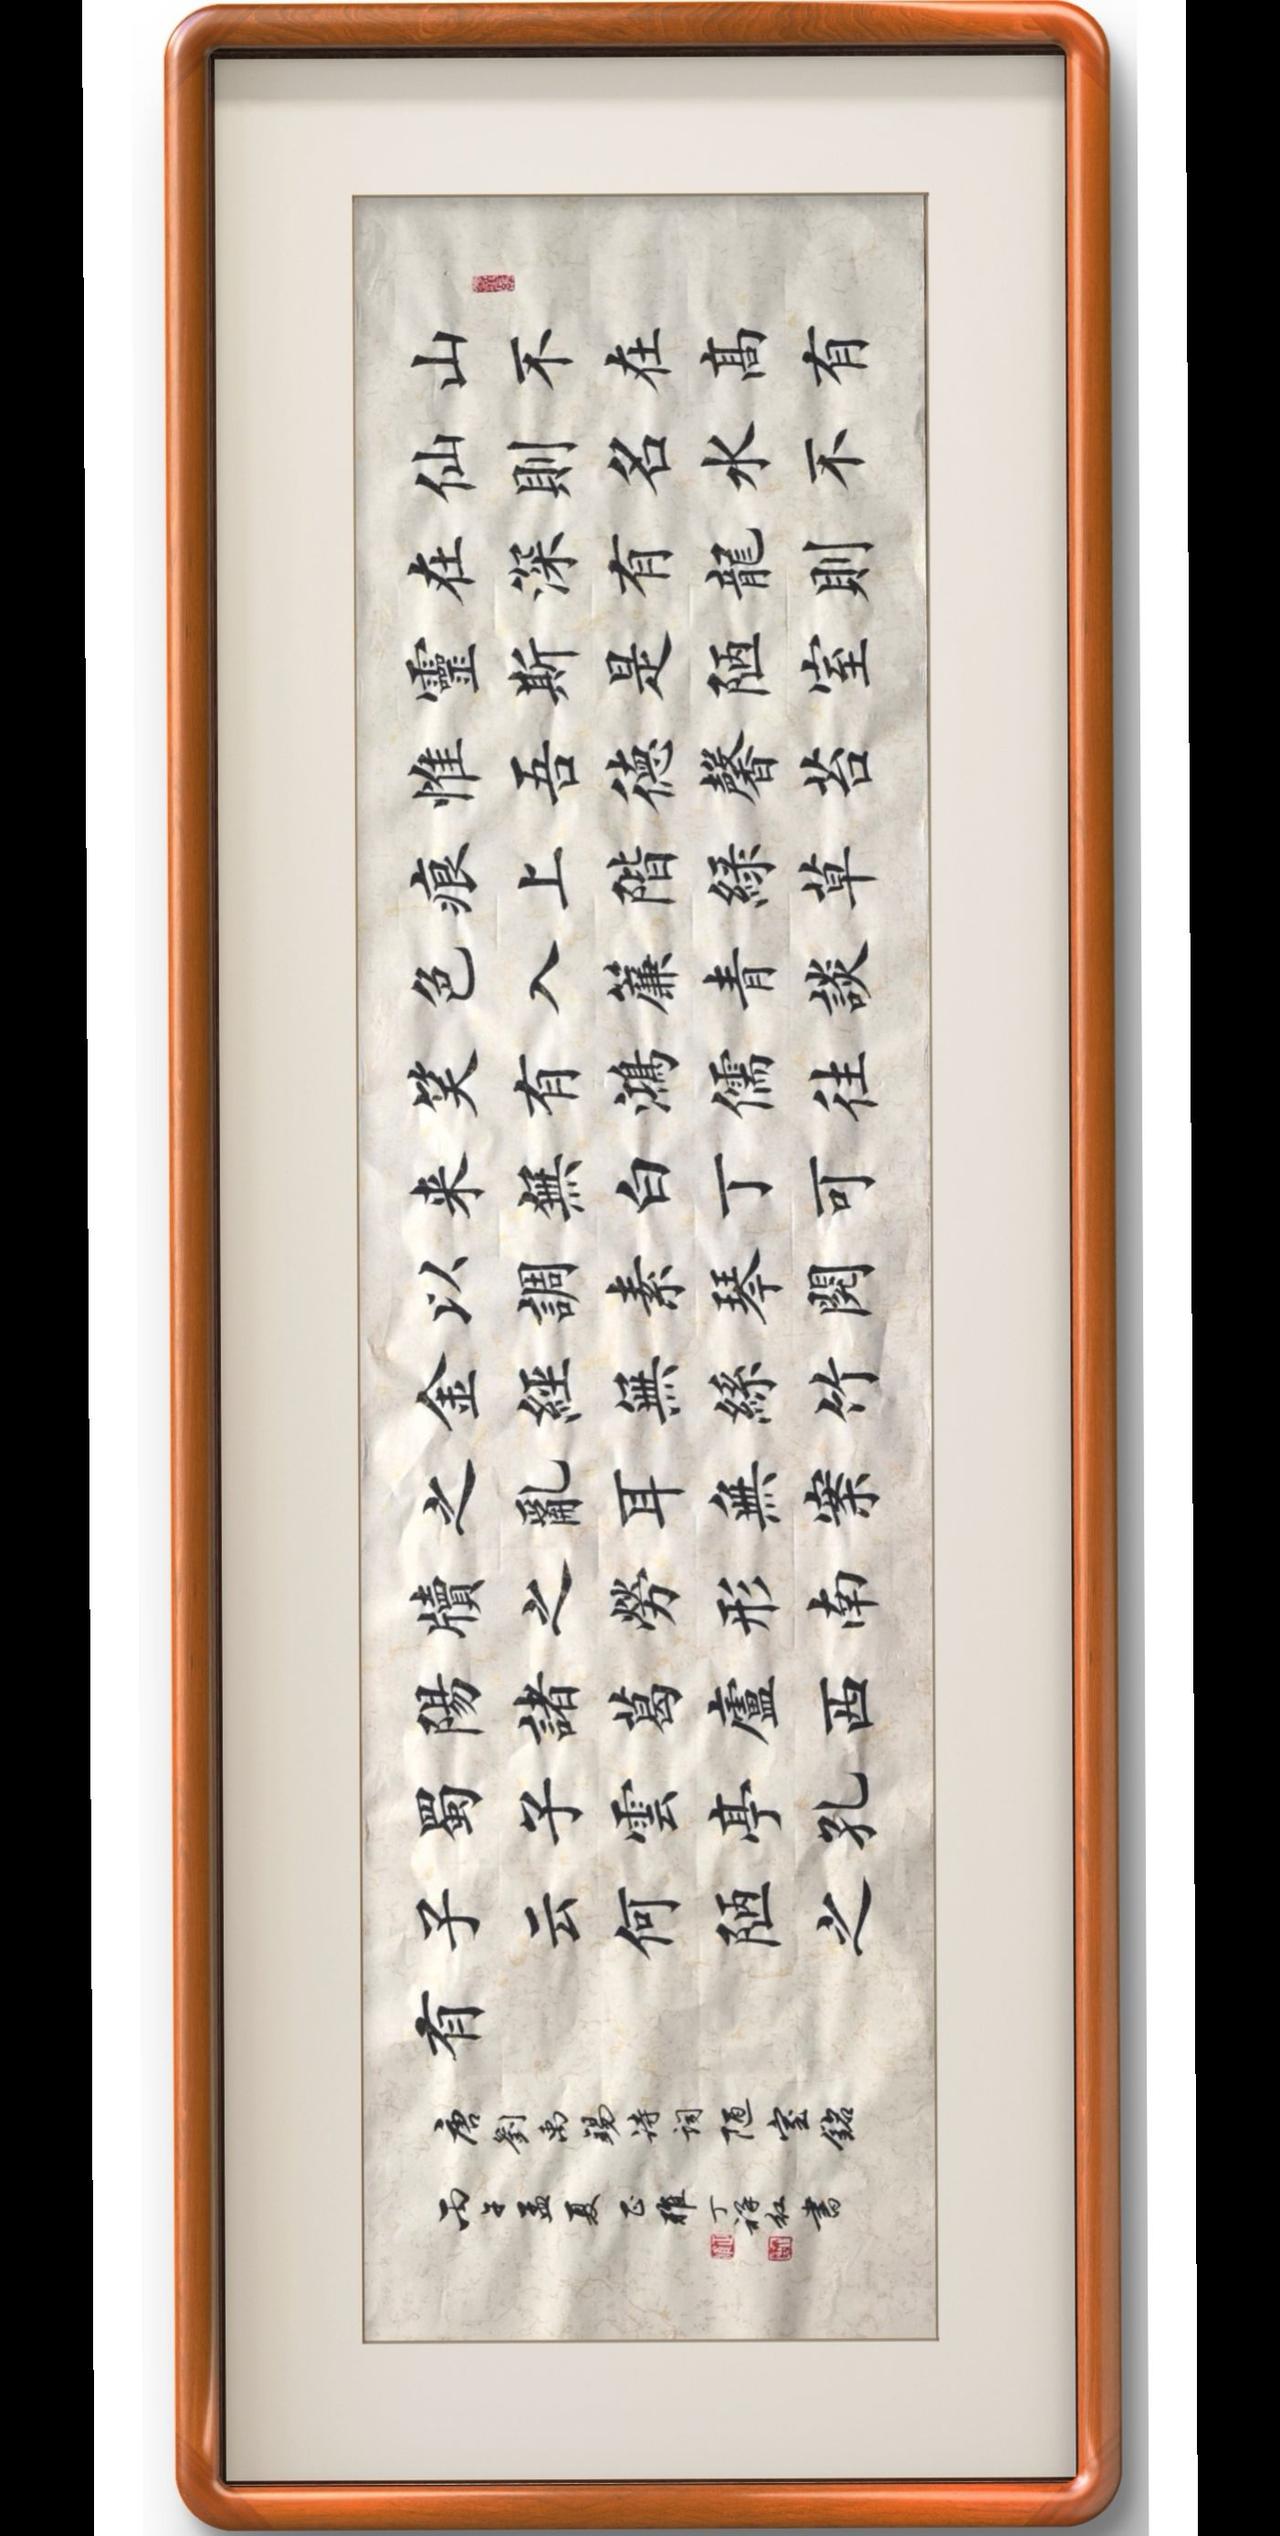 山不在高有
仙則名水不
在深有龍則
靈斯是陋室
惟吾德馨苔
痕上階綠草
色入簾青談
笑有鴻儒往
来無白丁可
以調素琴閱
金經無絲竹
之亂耳無案
牘之勞形南
陽諸葛廬西
蜀子雲亭孔
子云何陋之
有
唐劉禹锡诗词陋室銘
丙午孟夏正雅丁红書